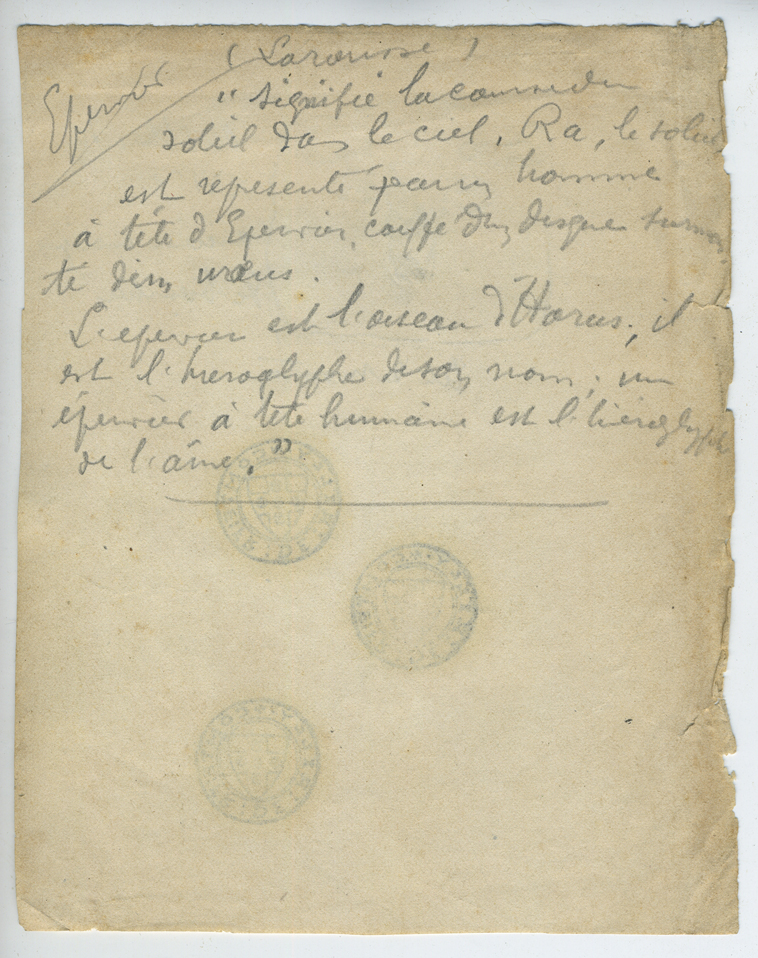 Epervier
( Larousse )
" signifie la course du
soleil dans le ciel, Ra, le soleil
est représenté par un homme
à tête d'Epervier, coiffé d'un disque surmon
té d'un uraeus.
L'epervier est l'oiseau d'Horus, il
est l'hieroglyphe de son nom ; un
épervier à tête humaine est l'hiéroglyphe
de l'âme. "